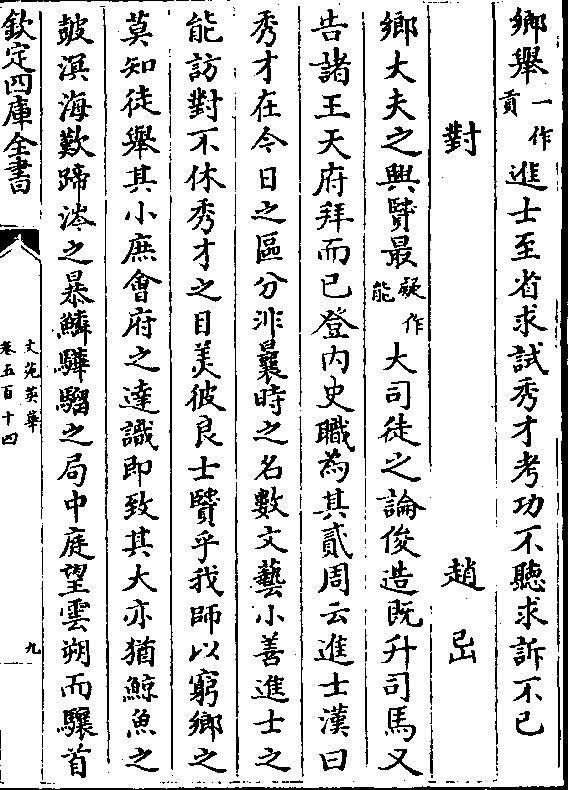 鄉舉一作貢進士至省求試秀才考功不聽求訴不已
對　趙岊
鄉大夫之興賢最疑作能大司徒之論俊造既升司馬又
告諸王天府拜而已登内史職為其貳周云進士漢曰
秀才在今日之區分非曩時之名數文藝小善進士之
能訪對不休秀才之目美彼良士賢乎我師以窮鄉之
莫知徒舉其小庶會府之達識即致其大亦猶鯨魚之
皷溟海歎蹄涔之暴鱗驊騮之局中庭望雲朔而驤首
欽定四庫全書
文苑英華
卷五百十四
九